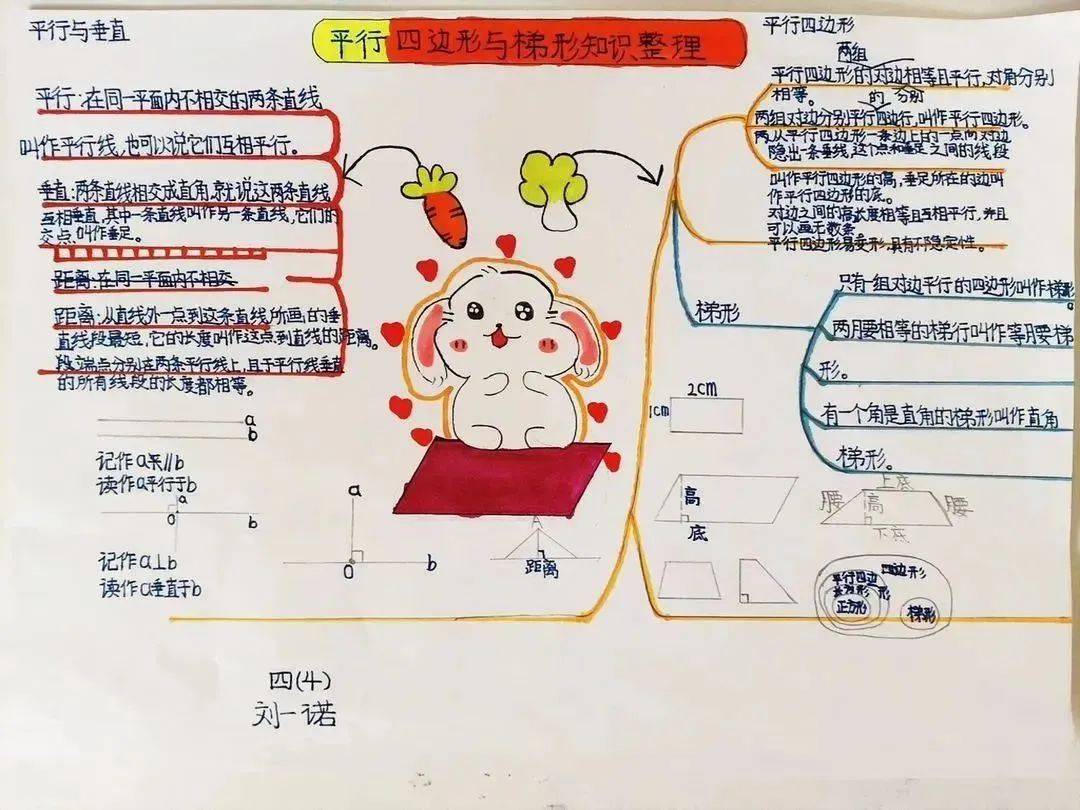 平行四边形与梯形知识整理
平行与垂直
平行:在同一平面内不相交的两条直线
叫作平行线,也可以说它们互相平行。
垂直:两条直线相交成直角,就说这两条直线
互相垂直,其中一条直线叫作另一条直线,它们的
交点叫作垂足。
距离:在同一平面内不相交
距离:从直线外一点到这条直线所画的垂
直线段最短,它的长度叫作这点到直线的距离。
段端点分别在两条平行线上,且于平行线垂直
的所有线段的长度都相等。
a
b
记作a∥b
读作a平行于b
a
O
b
记作a⊥b
读作a垂直于b
a
O
b
A
距离
平行四边形
两组
平行四边形的对边相等且平行,对角分别
相等。
的 分别
两组对边分别平行四边行,叫作平行四边形。
从平行四边形一条边上的一点向对边
隐出一条垂线,这个点和垂足之间的线段
叫作平行四边形的高,垂足所在的边叫
作平行四边形的底。
对边之间的高长度相等且互相平行,并且
可以画无数条
平行四边形易变形,具有不稳定性。
梯形
只有一组对边平行的四边形叫作梯形
。
两腰相等的梯行叫作等腰梯
形。
有一个角是直角的梯形叫作直角
梯形。
2cm
1cm
高
底
上底
腰
高
腰
下底
四边形
平行四边
形
长方形
正方形
梯形
四(4)
刘一诺